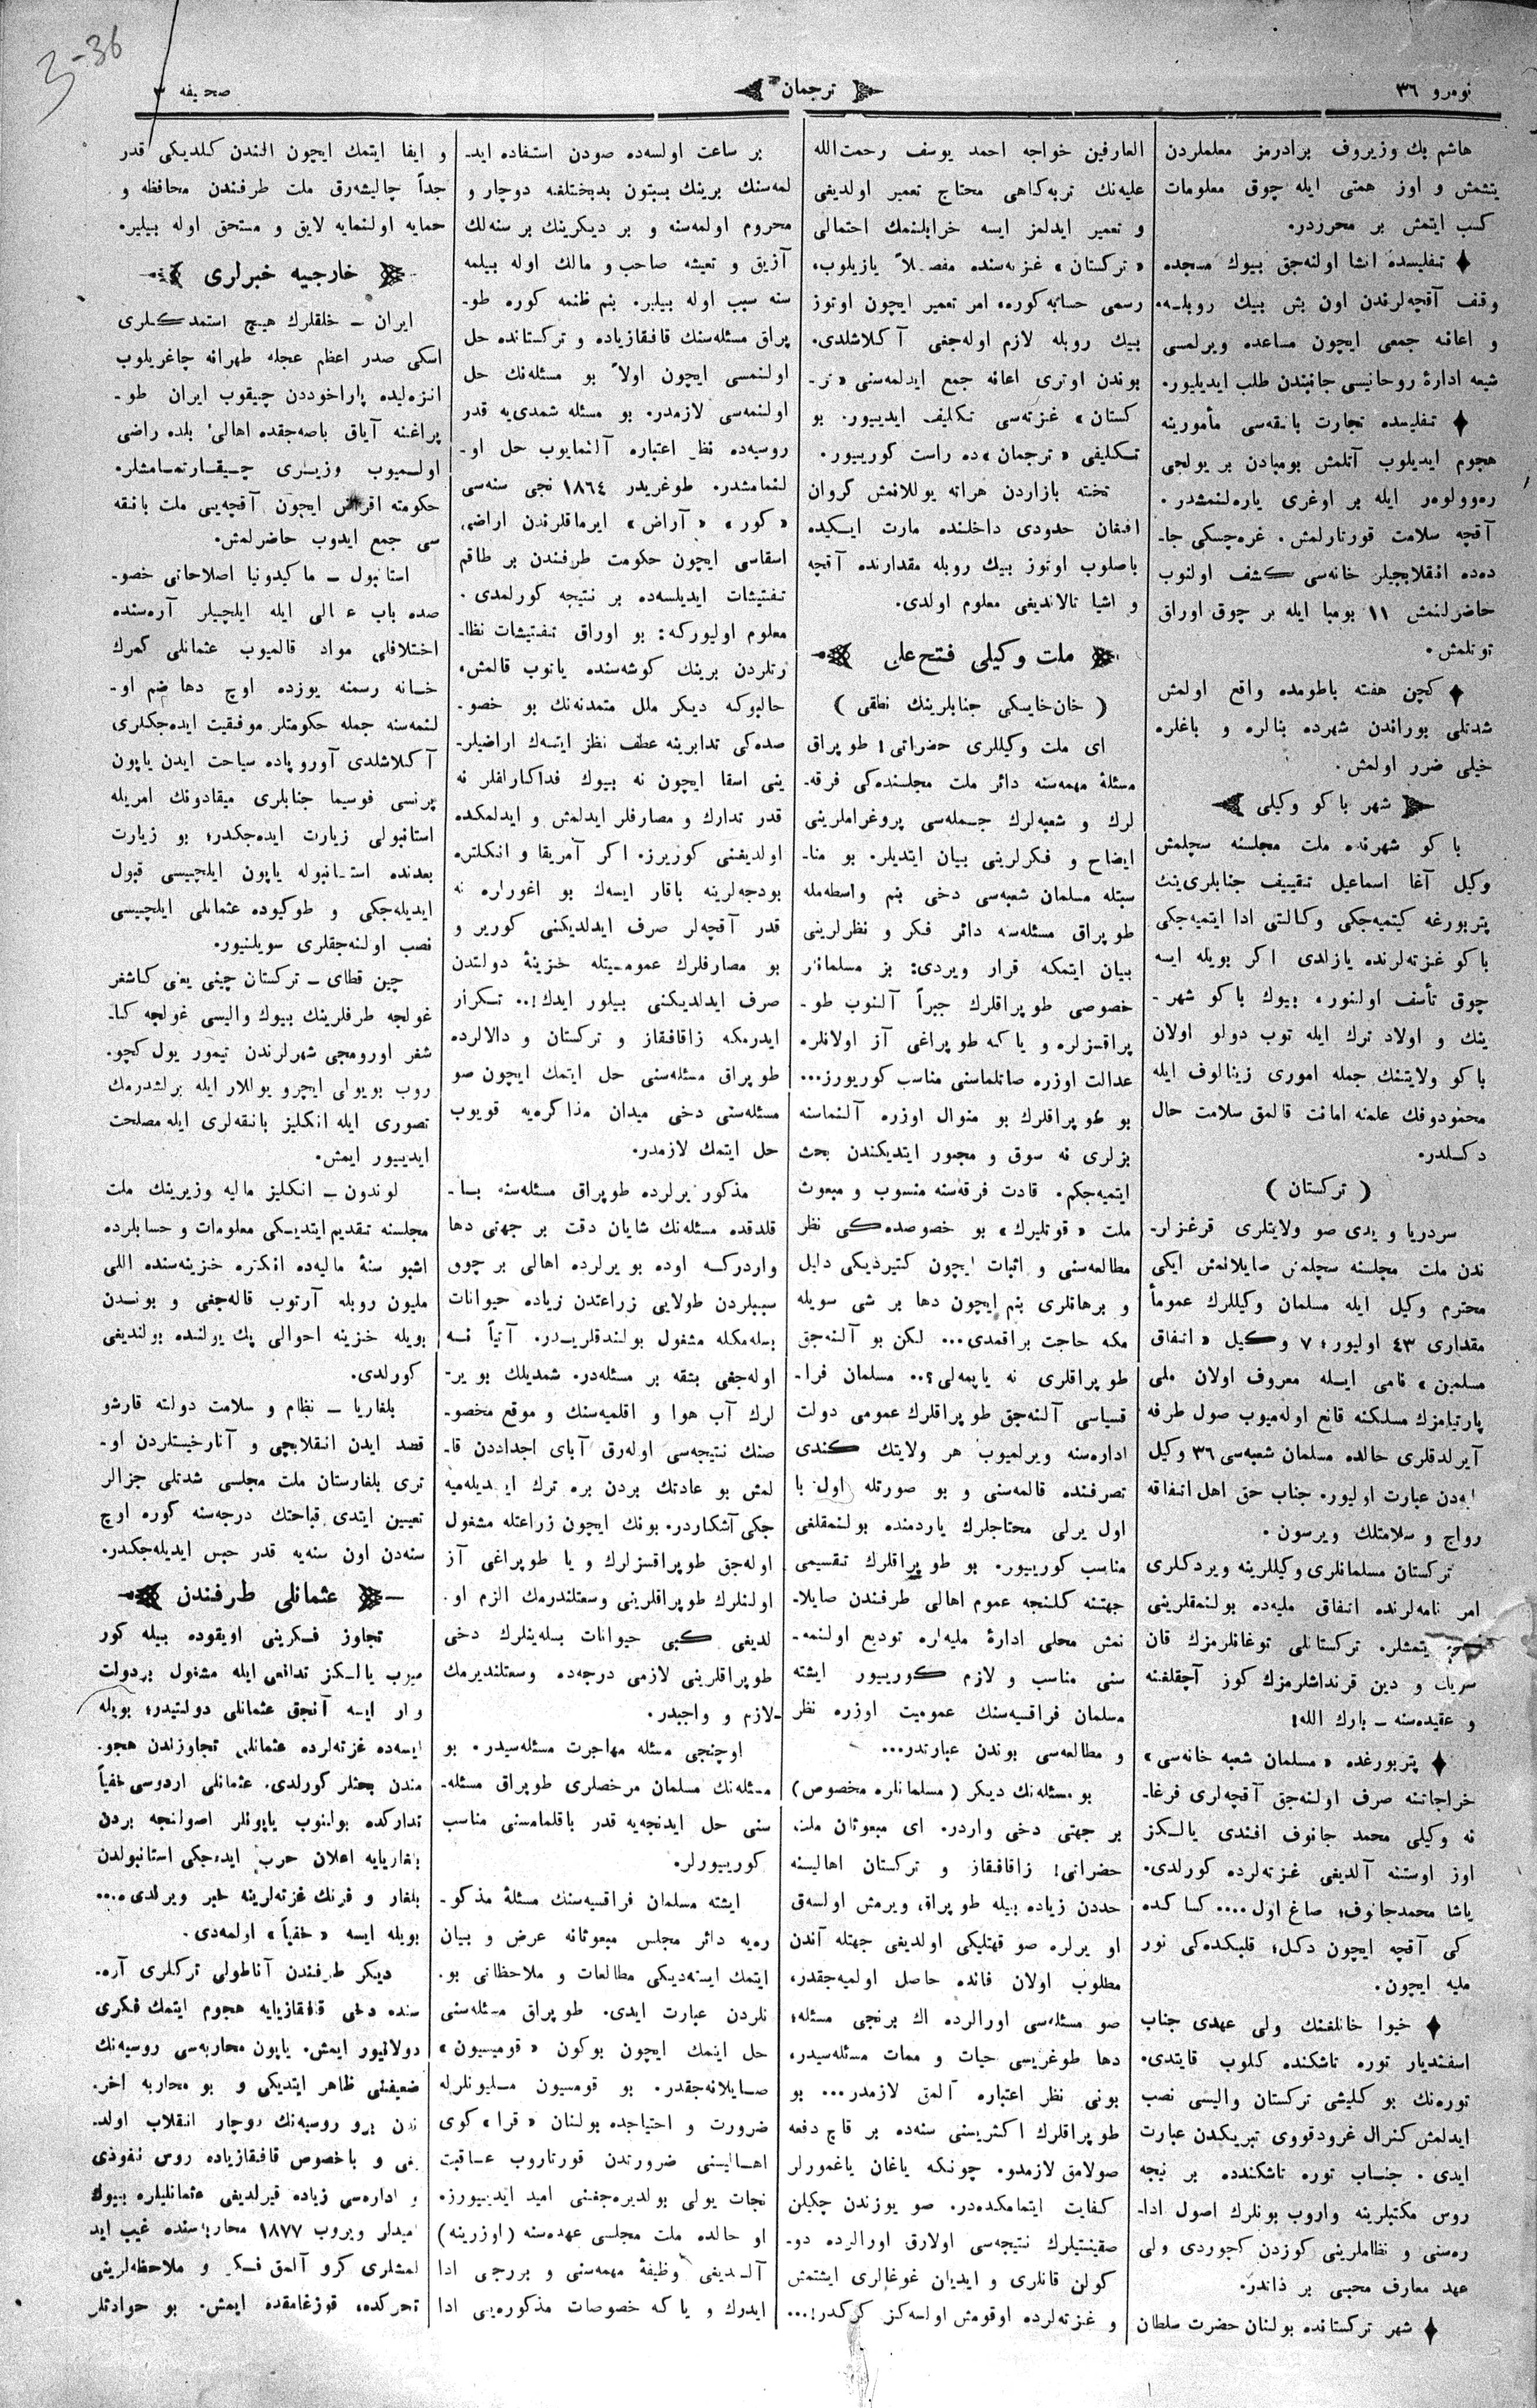 نومرو ٣٦
ترجمان
صحیفه ٣
3-36
هاشم بك وزیروف برادرمز معلملردن
یتشمش و اوز همتی ایله چوق معلومات
كسب ایتمش بر محرردر.
تفلیسده انشا اولنه‌جق بیوك مسجده
وقف آقچه‌لرندن اون بش بیك روبله
و اعانه جمعی ایچون مساعده ویرلمسی
شیعه ادارهٔ روحانیسی جانبندن طلب ایدیلیور.
تفلیسده تجارت بانقه‌سی مأمورینه
هجوم ایدیلوب آتلمش بومبادن بر یولجی
ره‌وولوه‌ر ایله بر اوغری یاره‌لنمشدر.
آقچه سلامت قورتارلمش. غره‌چسكی جا-
ده‌ده انقلابجیلر خانه‌سی كشف اولنوب
حاضرلنمش ١١ بومبا ایله بر چوق اوراق
توتلمش.
كچن هفته باطومده واقع اولمش
شدتلی بوراندن شهرده بنالره و باغلره
خیلی ضرر اولمش.
شهر باكو وكیلی
باكو شهرنده ملت مجلسنه سچلمش
وكیل آغا اسماعیل تقییف جنابلری‌نك
پتربورغه كیتمیه‌جكی وكالتی ادا ایتمیه‌جكی
باكو غزته‌لرنده یازلدی اكر بویله ایسه
چوق تأسف اولنور، بیوك باكو شهر-
ینك و اولاد ترك ایله توب دولو اولان
باكو ولایتنك جمله اموری زینالوف ایله
محمودوفك علمنه امانت قالمق سلامت حال
دكلدر.
( تركستان )
سردریا و یدی صو ولایتلری قرغزلر-
ندن ملت مجلسنه سچلمش صایلانمش ایكی
محترم وكیل ایله مسلمان وكیللرك عموماً
مقداری ٤٣ اولیور؛ ٧ وكیل «اتفاق
مسلمین» نامی ایله معروف اولان ملی
پارتیامزك مسلكنه قانع اوله‌میوب صول طرفه
آیرلدقلری حالده مسلمان شعبه‌سی ٣٦ وكیل
ایه‌دن عبارت اولیور. جناب حق اهل اتفاقه
رواج و سلامتلك ویرسون.
تركستان مسلمانلری وكیللرینه ویردكلری
امر نامه‌لرنده اتفاق ملیه‌ده بولنمقلرینی
یتمشلر. تركستانلی توغانلرمزك قان
سریك و دین قرنداشلرمزك كوز آچقلغنه
و عقیده‌سنه – بارك الله!
پتربورغده «مسلمان شعبه خانه‌سی»
خراجاتنه صرف اولنه‌جق آقچه‌لری فرغا-
نه وكیلی محمد جانوف افندی یالكز
اوز اوستنه آلدیغی غزته‌لرده كورلدی.
یاشا محمدجانوف؛ صاغ اول.... كساكده
كی آقچه ایچون دكل؛ قلبكده‌كی نور
ملیه ایچون.
خیوا خانلغنك ولی عهدی جناب
اسفندیار توره تاشكنده كلوب قایتدی.
توره‌نك بو كلیشی تركستان والیسی نصب
ایدلمش كنرال غرودقووی تبریكدن عبارت
ایدی. جناب توره تاشكندده بر نیجه
روس مكتبلرینه واروب بونلرك اصول ادا-
ره‌سنی و نظاملرینی كوزدن كچوردی ولی
عهد معارف محبی بر ذاتدر.
شهر تركستانده بولنان حضرت سلطان
العارفین خواجه احمد یوسف رحمت‌الله
علیه‌نك تربه‌كاهی محتاج تعمیر اولدیغی
و تعمیر ایدلمز ایسه خرابلنمك احتمالی
«تركستان» غزته‌سنده مفصلاً یازیلوب،
رسمی حسابه كوره، امر تعمیر ایچون اوتوز
بیك روبله لازم اوله‌جغی آكلاشلدی.
بوندن اوتری اعانه جمع ایدلمه‌سنی «تر-
كستان» غزته‌سی تكلیف ایدییور. بو
تكلیفی «ترجمان»ده راست كورییور.
تخته بازاردن هراته یوللانمش كروان
افغان حدودی داخلنده مارت ایكیده
باصلوب اوتوز بیك روبله مقدارنده آقچه
و اشیا تالاندیغی معلوم اولدی.
ملت وكیلی فتح علی
( خان‌خایسكی جنابلرینك نطقی )
ای ملت وكیللری حضراتی! طوپراق
مسئلهٔ مهمه‌سنه دائر ملت مجلسنده‌كی فرقه-
لرك و شعبه‌لرك جمله‌سی پروغراملرینی
ایضاح و فكرلرینی بیان ایتدیلر. بو منا-
سبتله مسلمان شعبه‌سی دخی بنم واسطه‌مله
طوپراق مسئله‌سنه دائر فكر و نظرلرینی
بیان ایتمكه قرار ویردی: بز مسلمانلر
خصوصی طوپراقلرك جبراً آلنوب طو-
پراقسزلره و یاكه طوپراغی آز اولانلره
عدالت اوزره صاتلماسنی مناسب كوریورز...
بو طوپراقلرك بو منوال اوزره آلنماسنه
بزلری نه سوق و مجبور ایتدیكندن بحث
ایتمیه‌جكم. قادت فرقه‌سنه منسوب و مبعوث
ملت «قوتلیرك» بو خصوصده‌كی نظر
مطالعه‌سنی و اثبات ایچون كتیردیكی دلیل
و برهانلری بنم ایچون دها بر شی سویله
مكه حاجت براقمدی... لكن بو آلنه‌جق
طوپراقلری نه یاپمه‌لی؟.. مسلمان فرا-
قسیاسی آلنه‌جق طوپراقلرك عمومی دولت
اداره‌سنه ویرلمیوب هر ولایتك كندی
تصرفنده قالمه‌سنی و بو صورتله اول با
اول یرلی محتاجلرك یاردمنده بولنمقلغی
مناسب كورییور. بو طوپراقلرك تقسیمی
جهتنه كلنجه عموم اهالی طرفندن صایلا-
نمش محلی ادارهٔ ملیه‌لره تودیع اولنمه-
سنی مناسب و لازم كورییور ایشته
مسلمان فراقسیه‌سنك عمومیت اوزره نظر
و مطالعه‌سی بوندن عبارتدر...
بو مسئله‌نك دیكر (مسلمانلره مخصوص)
بر جهتی دخی واردر. ای مبعوثان ملت
حضراتی! زاقافقاز و تركستان اهالیسنه
حددن زیاده بیله طوپراق ویرمش اولسه‌ق
او یرلره صو قیتلیكی اولدیغی جهتله آندن
مطلوب اولان فائده حاصل اولمیه‌جقدر،
صو مسئله‌سی اورالرده اك برنجی مسئله؛
دها طوغریسی حیات و ممات مسئله‌سیدر،
بونی نظر اعتباره آلمق لازمدر... بو
طوپراقلرك اكثریسنی سنه‌ده بر قاچ دفعه
صولامق لازمدو. چونكه یاغان یاغمورلر
كفایت ایتمامكده‌در. صو یوزندن چكیلن
صقینتیلرك نتیجه‌سی اولارق اورالرده دو-
كولن قانلری و ایدیان غوغالری ایشتمش
و غزته‌لرده اوقومش اولسه‌كز كركدر!...
بر ساعت اولسه‌ده صودن استفاده اید-
لمه‌سنك برینك بسبتون بدبختلغه دوچار و
محروم اولمه‌سنه و بر دیكرینك بر سنه‌لك
آزیق و تعیشه صاحب و مالك اوله بیلمه
سنه سبب اوله بیلیر. بنم ظنمه كوره طو-
پراق مسئله‌سنك قافقازیاده و تركستانده حل
اولنمسی ایچون اولاً بو مسئله‌نك حل
اولنمه‌سی لازمدر. بو مسئله شمدی‌یه قدر
روسیه‌ده نظر اعتباره آلنمایوب حل او-
لنمامشدر. طوغریدر ١٨٦٤ نجی سنه‌سی
«كور» «آراض» ایرماقلرندن اراضی
اسقاسی ایچون حكومت طرفندن بر طاقم
تفتیشات ایدیلسه‌ده بر نتیجه كورلمدی.
معلوم اولیوركه: بو اوراق تفتیشات نظا-
رتلردن برینك كوشه‌سنده یاتوب قالمش،
حالبوكه دیكر ملل متمدنه‌نك بو خصو-
صده‌كی تدابرینه عطف نظر ایتسه‌ك اراضیلر-
ینی اسقا ایچون نه بیوك فداكارلقلر نه
قدر تدارك و مصارفلر ایدلمش و ایدلمكده
اولدیغنی كوریرز. اكر آمریقا و انكلتره
بودجه‌لرینه باقار ایسه‌ك بو اغورلره نه
قدر آقچه‌لر صرف ایدلدیكنی كوریر و
بو مصارفلرك عمومیتله خزینهٔ دولتدن
صرف ایدلدیكنی بیلور ایدك!.. تكرار
ایدرمكه زاقافقاز و تركستان و دالالرده
طوپراق مسئله‌سنی حل ایتمك ایچون صو
مسئله‌سنی دخی میدان مذاكره‌یه قویوب
حل ایتمك لازمدر.
مذكور یرلرده طوپراق مسئله‌سنه با-
قلدقده مسئله‌نك شایان دقت بر جهتی دها
واردركه اوده بو یرلرده اهالی بر چوق
سببلردن طولایی زراعتدن زیاده حیوانات
بسله‌مكله مشغول بولندقلریدر. آتیاً نه
اوله‌جغی بشقه بر مسئله‌در. شمدیلك بو یر-
لرك آب هوا و اقلمیه‌سنك و موقع مخصو-
صنك نتیجه‌سی اوله‌رق آبای اجداددن قا-
لمش بو عادتك بردن بره ترك ایدیله‌میه
جكی آشكاردر. بونك ایچون زراعتله مشغول
اوله‌جق طوپراقسزلرك و یا طوپراغی آز
اولنلرك طوپراقلرینی وسعتلندرمك الزم او.
لدیغی كبی حیوانات بسله‌ینلرك دخی
طوپراقلرینی لازمی درجه‌ده وسعتلندیرمك
لازم و واجبدر.
اوچنجی مسئله مهاجرت مسئله‌سیدر. بو
مسئله‌نك مسلمان مرخصلری طوپراق مسئله-
سنی حل ایدنجه‌یه قدر باقلمامسنی مناسب
كورییورلر.
ایشته مسلمان فراقسیه‌سنك مسئلهٔ مذكو-
ره‌یه دائر مجلس مبعوثانه عرض و بیان
ایتمك ایسته‌دیكی مطالعات و ملاحظاتی بو.
نلردن عبارت ایدی. طوپراق مسئله‌سنی
حل ایتمك ایچون بوكون «قومیسیون»
صایلانه‌جقدر. بو قومسیون ملیونلرله
ضرورت و احتیاجده بولنان «قرا» كوی
اهالیسنی ضرورتدن قورتاروب عاقبت
نجات یولی بولدیره‌جغنی امید ایدییورز.
او حالده ملت مجلسی عهده‌سنه (اوزرینه)
آلدیغی وظیفهٔ مهمه‌سنی و بورجی ادا
ایدرك و یاكه خصوصات مذكوره‌یی ادا
و ایفا ایتمك ایچون النندن كلدیكی قدر
جداً چالیشه‌رق ملت طرفندن محافظه و
حمایه اولنمایه لایق و مستحق اوله بیلیر.
خارجیه خبرلری
ایران – خلقلرك هیچ استمدكلری
اسكی صدر اعظم عجله طهرانه چاغریلوب
انزه‌لیده پاراخوددن چیقوب ایران طو-
پراغنه آیاق باصه‌جقده اهالیٔ بلده راضی
اولمیوب وزیری چیقارتمامشلر.
حكومته اقراض ایچون آقچه‌یی ملت بانقه
سی جمع ایدوب حاضرلمش.
استانبول – ماكیدونیا اصلاحاتی خصو-
صده باب عالی ایله ایلچیلر آره‌سنده
اختلافلی مواد قالمیوب عثمانلی كمرك
خانه رسمنه یوزده اوچ دها ضم او-
لنمه‌سنه جمله حكومتلر موفقیت ایده‌جكلری
آكلاشلدی آوروپاده سیاحت ایدن یاپون
پرنسی فوسیما جنابلری میقادونك امریله
استانبولی زیارت ایده‌جكدر؛ بو زیارت
بعدنده استانبوله یاپون ایلچیسی قبول
ایدیله‌جكی و طوكیوده عثمانلی ایلچیسی
نصب اولنه‌جقلری سویلنیور.
چین قطای – تركستان چینی یعنی كاشغر
غولجه طرفلرینك بیوك والیسی غولجه كا-
شغر اورومچی شهرلرندن تیمور یول كچو.
روب بو یولی ایچرو یوللار ایله برلشدرمك
تصوری ایله انكلیز بانقه‌لری ایله مصلحت
ایدییور ایمش.
لوندون – انكلیز مالیه وزیرینك ملت
مجلسنه تقدیم ایتدیكی معلومات و حسابلرده
اشبو سنهٔ مالیه‌ده انكلتره خزینه‌سنده اللی
ملیون روبله آرتوب قاله‌جغی و بوندن
بویله خزینه احوالی پك یولنده بولندیغی
كورلدی.
بلغاریا – نظام و سلامت دولته قارشو
قصد ایدن انقلابچی و آنارخیستلردن او-
تری بلغارستان ملت مجلسی شدتلی جزالر
تعیین ایتدی قباحتك درجه‌سنه كوره اوچ
سنه‌دن اون سنه‌یه قدر حبس ایدیله‌جكدر.
عثمانلی طرفندن
تجاوز فكرینی اویقوده بیله كور
میوب یالكز تدافعی ایله مشغول بر دولت
وار ایسه آنجق عثمانلی دولتیدر؛ بویله
ایسه‌ده غزته‌لرده عثمانلی تجاوزندن هجو.
مندن بحثلر كورلدی. عثمانلی اردوسی خفیاً
تداركده بولنوب یاپونلر اصولنجه بردن
بلغاریایه اعلان حرب ایده‌جكی استانبولدن
بلغار و فرنك غزته‌لرینه خبر ویرلدی....
بویله ایسه «خفیاً» اولمه‌دی.
دیكر طرفندن آناطولی تركلری آره.
سنده دخی قافقازیایه هجوم ایتمك فكری
دولانیور ایمش. یاپون محاربه‌سی روسیه‌نك
ضعیفنی ظاهر ایتدیكی و بو محاربه اخر.
ندن برو روسیه‌نك دوچار انقلاب اولد.
یغی و باخصوص قافقازیاده روس نفوذی
و اداره‌سی زیاده قیرلدیغی عثمانلیلره بیوك
امیدلر ویروب ١٨٧٧ محاربه‌سنده غیب اید
لمشلری كرو آلمق فكر و ملاحظه‌لرینی
تحركده، قوزغامقده ایمش. بو حوادثلر